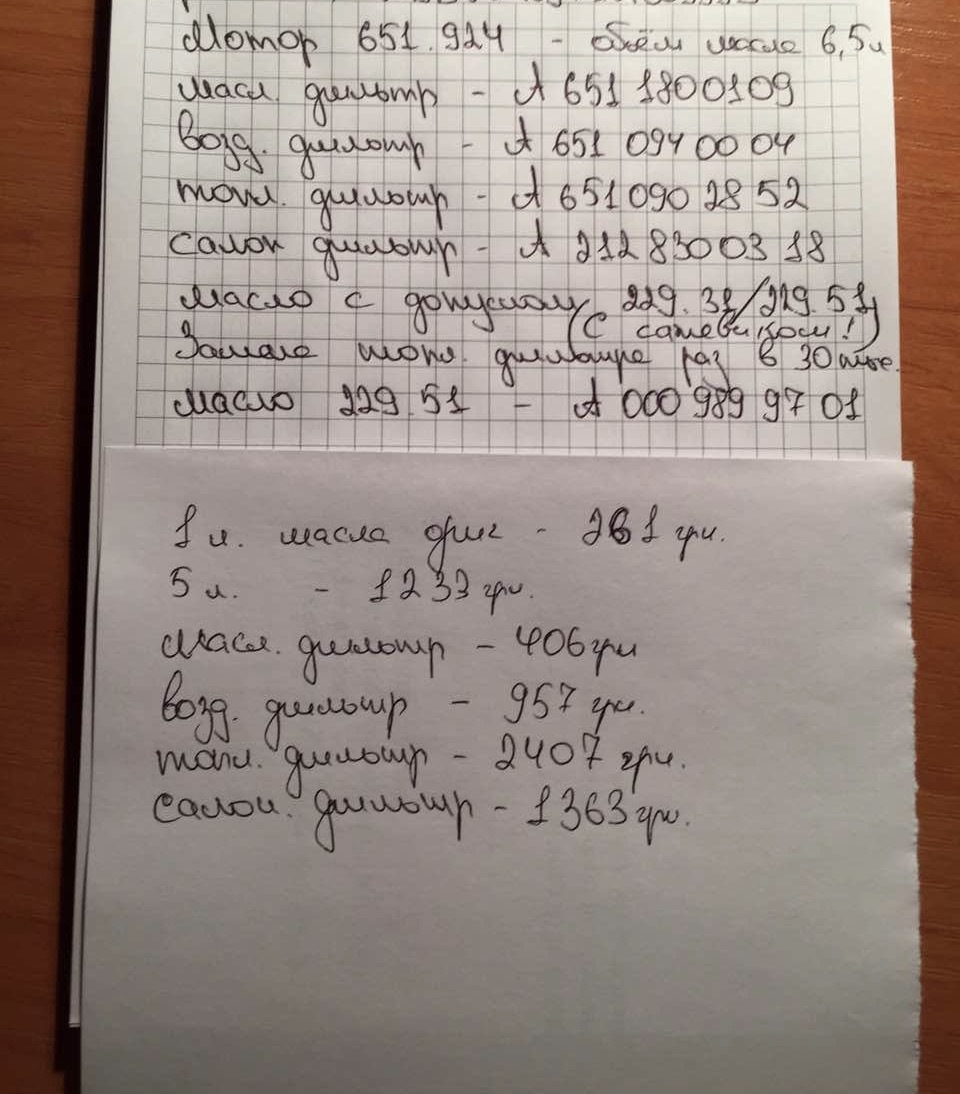 Мотор 651.924 - объём масла 6,5л
масл. фильтр - А 651 1800109
возд. фильтр - А 651 094 00 04
топл. фильтр - А 651 090 28 52
салон фильтр - А 212 83003 18
масло с допуском 229.31/229.51
(с сажевиком!)
Замена топл. фильтра раз в 30 тыс.
масло 229.51 - А 000 989 97 01
1 л. масла ориг - 261 грн.
5 л. - 1233 грн.
Масл. фильтр - 406 грн
возд. фильтр - 957 грн.
топл. фильтр - 2407 грн.
салон. фильтр - 1363 грн.